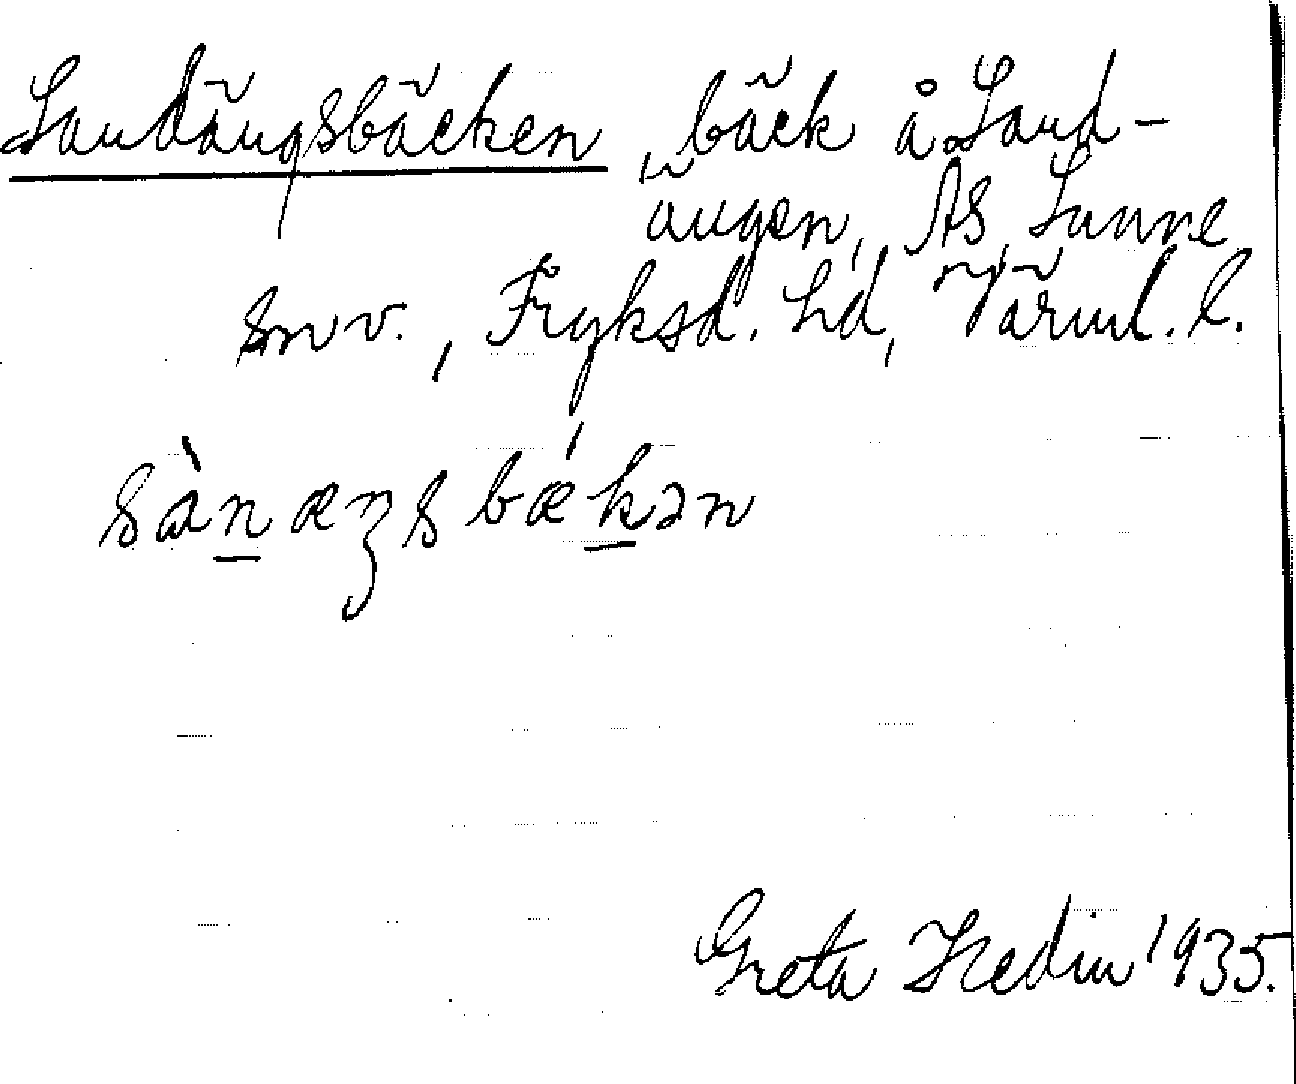 Sandängsbäcken, bäck å Sand-
ängen, ÄS, Sunne
snv., Fryksd. hd, Värml. l.
sànæŋsbǽkən
Greta Hedin 1935.